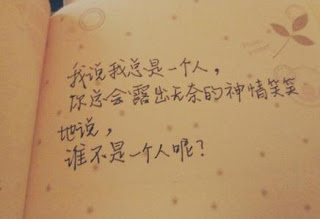 我说我总是一个人，
你总会露出无奈的神情笑笑
地说，
谁不是一个人呢？